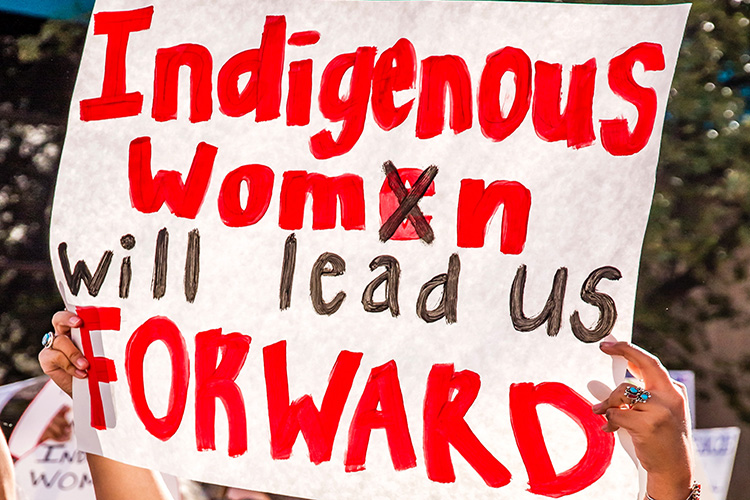 Indigenous
Womxn
will lead us
FORWARD
IN
WOM